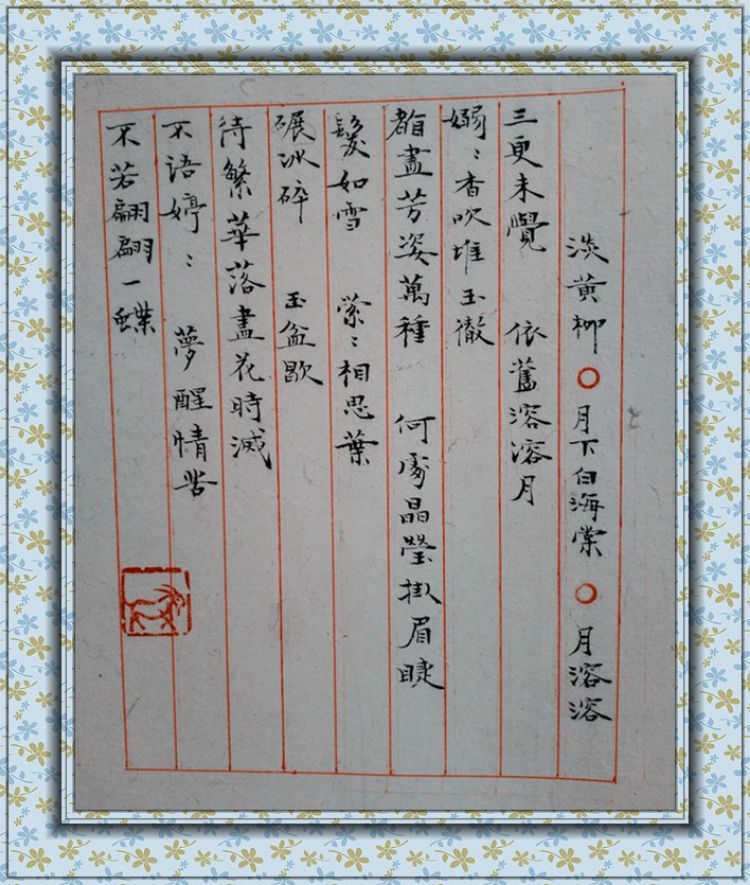 淡黃柳○月下白海棠○月溶溶
三更未覺 依舊溶溶月
嫋〻香吹堆玉徹
盡芳姿萬種 何處晶瑩掛眉睫
髮如雪 縈〻相思葉
碾冰碎 玉盆歇
待繁華落盡花時滅
不語婷〻 夢醒情苦
不若翩翩一蝶